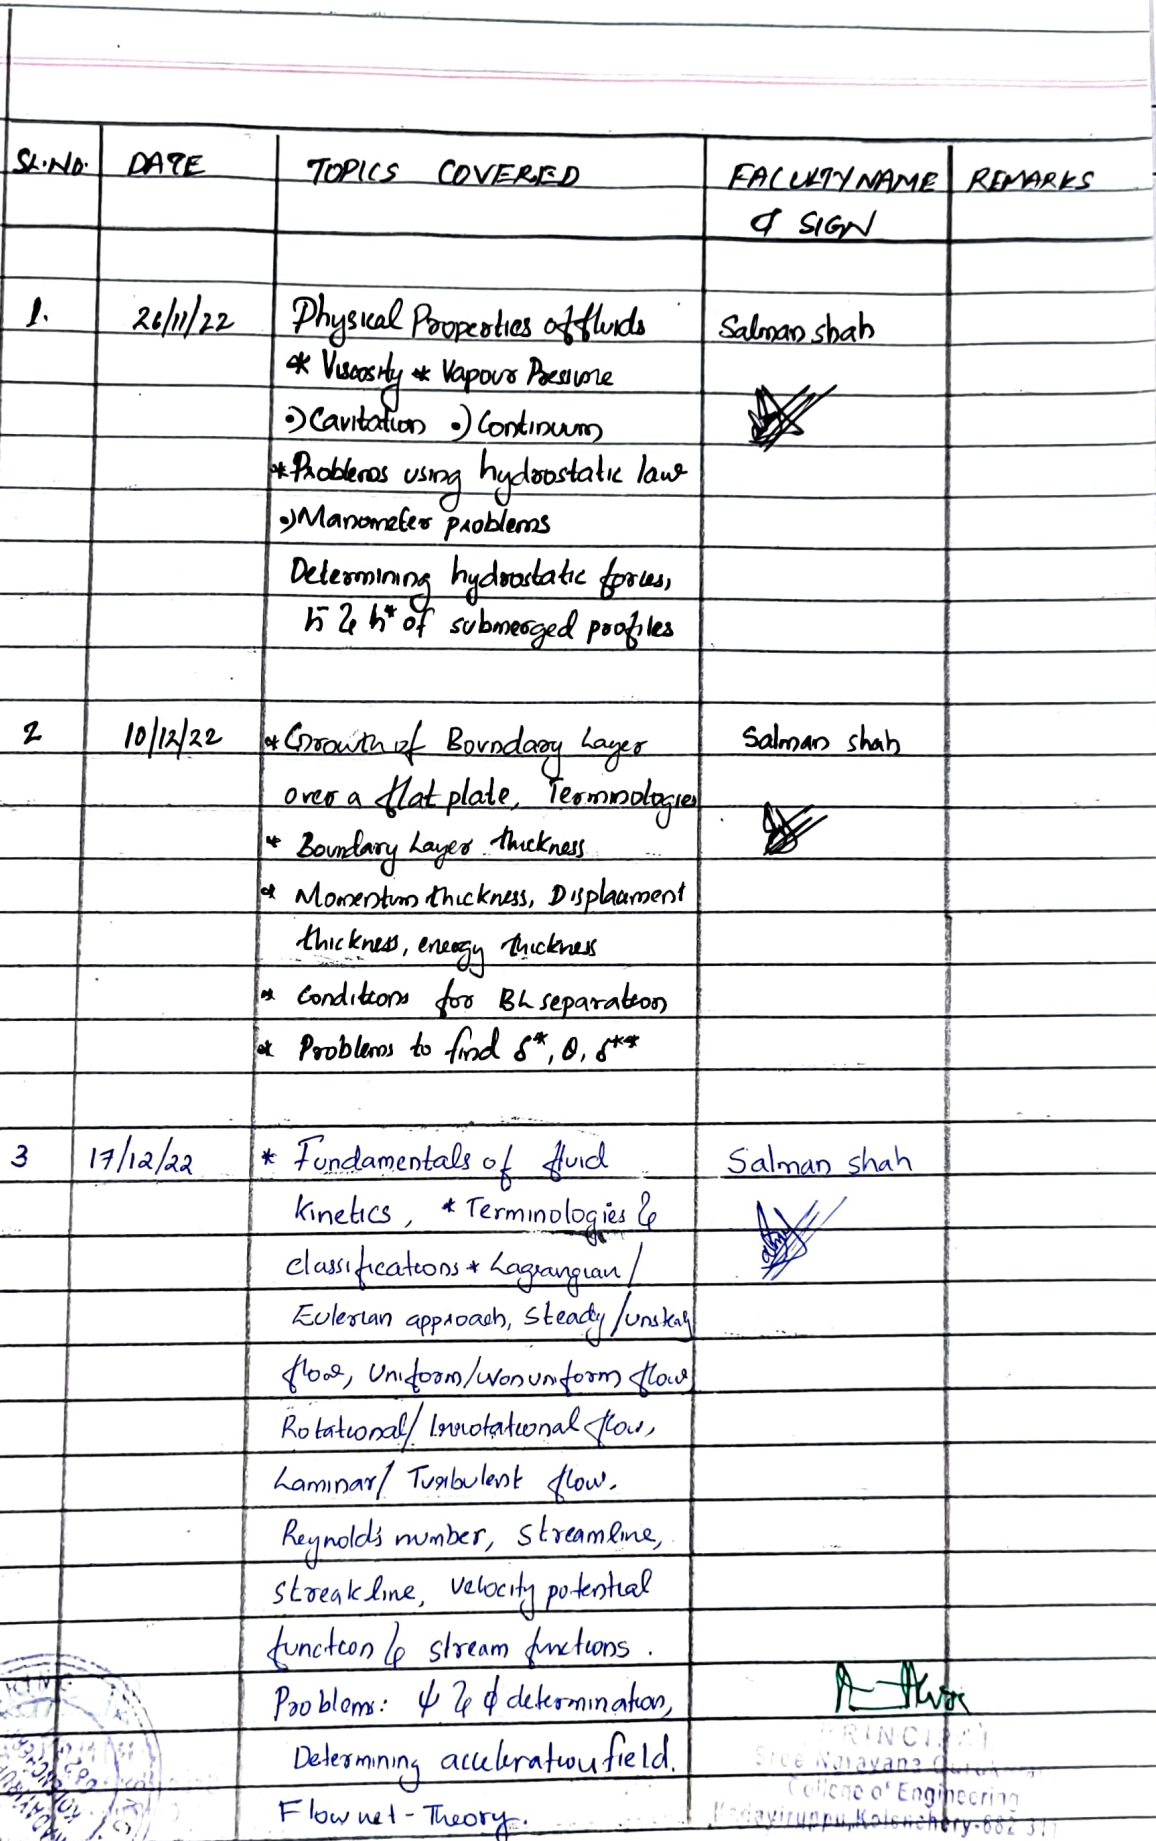 SL.NO. DATE TOPICS COVERED FACULTY NAME REMARKS
& SIGN
1. 26/11/22 Physical Properties of fluids Salman shah
* Viscosity * Vapour Pressure
•) Cavitation •) Continuum
* Problems using hydrostatic law
•) Manometer problems
Determining hydrostatic forces,
h̄ & h* of submerged profiles
2 10/12/22 * Growth of Boundary Layer Salman shah
over a flat plate, Terminologies
* Boundary Layer thickness
* Momentum thickness, Displacement
thickness, energy thickness
* Conditions for BL separation
* Problems to find δ*, θ, δ**
3 17/12/22 * Fundamentals of fluid Salman shah
Kinetics, * Terminologies &
classifications * Lagrangian/
Eulerian approach, Steady/unsteady
flow, Uniform/Nonuniform flow
Rotational/Irrotational flow,
Laminar/Turbulent flow.
Reynold's number, streamline,
streakline, velocity potential
function & stream functions.
Problems: ψ & φ determination,
Determining acceleration field.
Flow net - Theory.
PRINCIPAL
Sree Narayana
College of Engineering
Kadayiruppu, Kolenchery-682 311